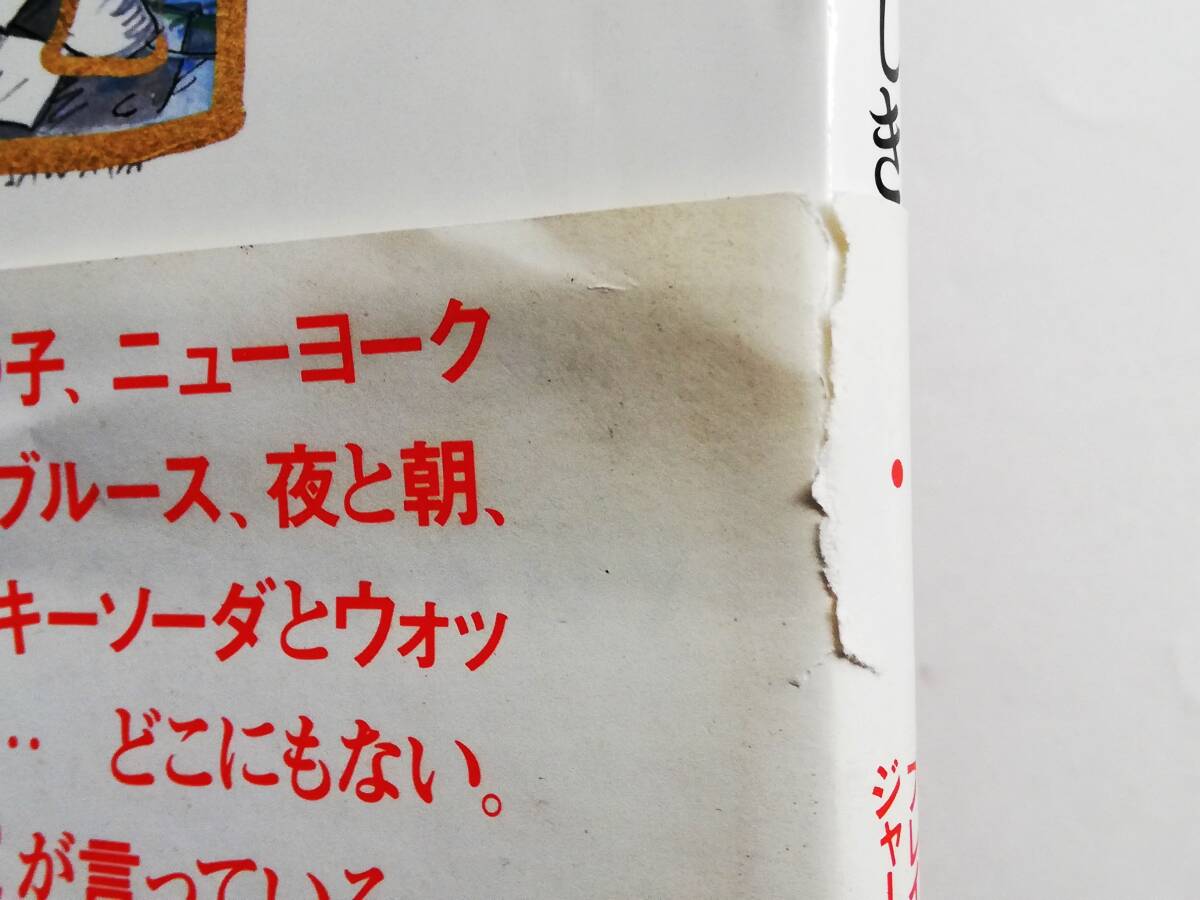 子、ニューヨーク
ブルース、夜と朝、
キーソーダとウォッ
‥ どこにもない。
が言っている
しき
ジャー